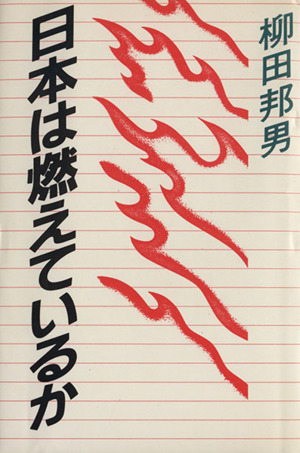 柳田邦男
日本は燃えているか